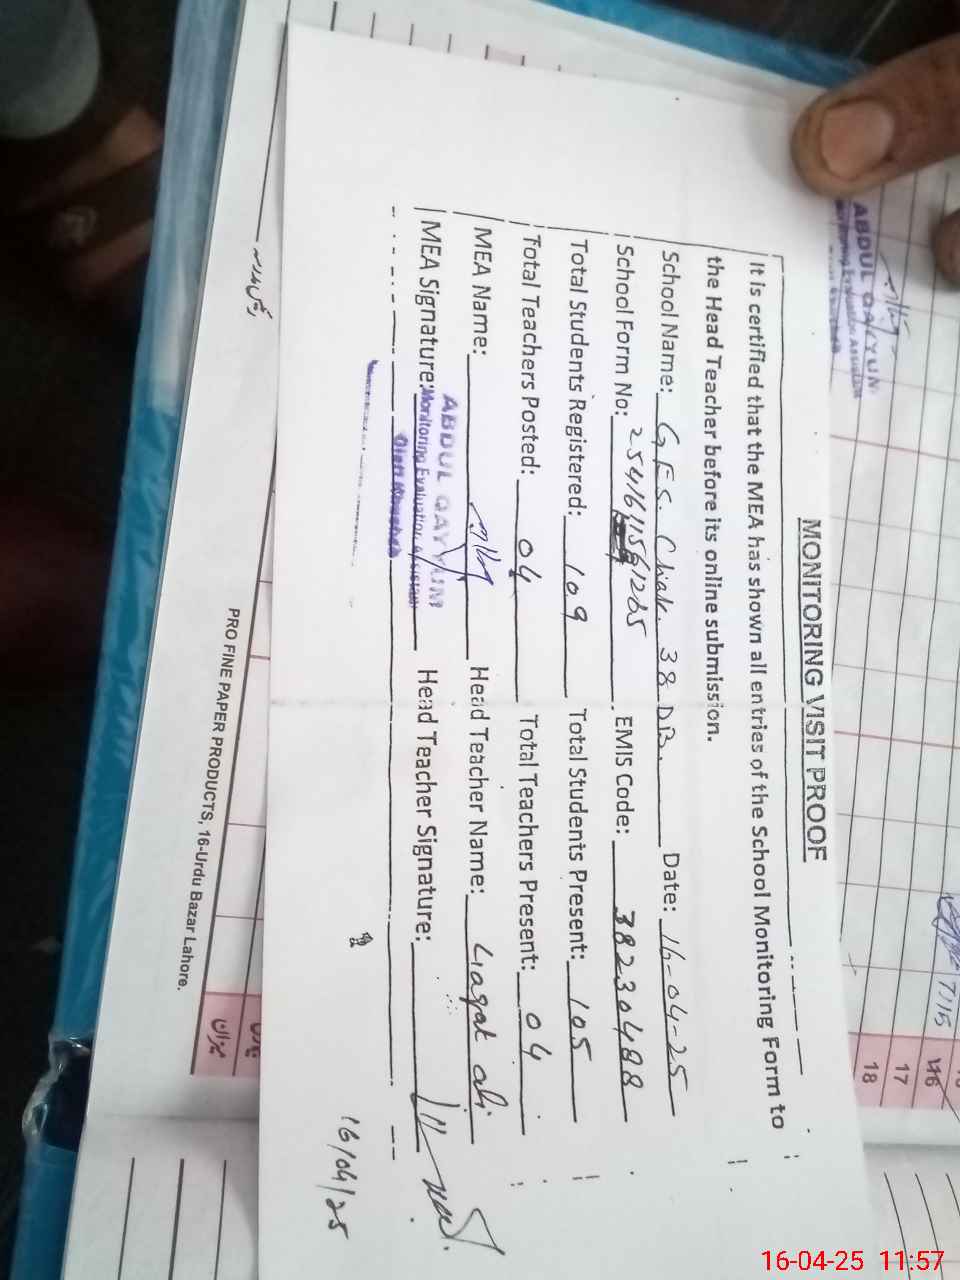 MONITORING VISIT PROOF
It is certified that the MEA has shown all entries of the School Monitoring Form to
the Head Teacher before its online submission.
School Name: G.E.S. Chak. 38 DB. Date: 16-04-25
School Form No: EMIS Code: 38230488
Total Students Registered: 109 Total Students Present: 105
Total Teachers Posted: 04 Total Teachers Present: 04
MEA Name: Head Teacher Name: Liaqat ali
ABDUL QAYYUM
MEA Signature: Monitoring Evaluation Assistant Head Teacher Signature:
Distt Khushab
16/04/25
ABDUL QAYYUM
Monitoring Evaluation Assistant
7/15
16
17
18
میزان
PRO FINE PAPER PRODUCTS, 16-Urdu Bazar Lahore.
16-04-25 11:57